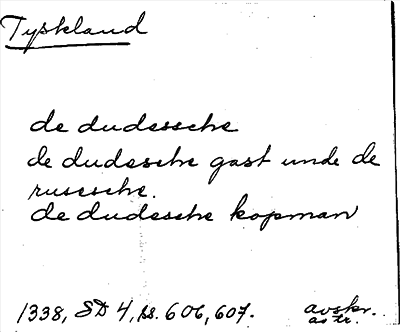 Tyskland
de dudessche
de dudesche gast unde de
rusesche.
de dudessche kopman
1338, SD 4, ss. 606, 607. avskr.
as tr.